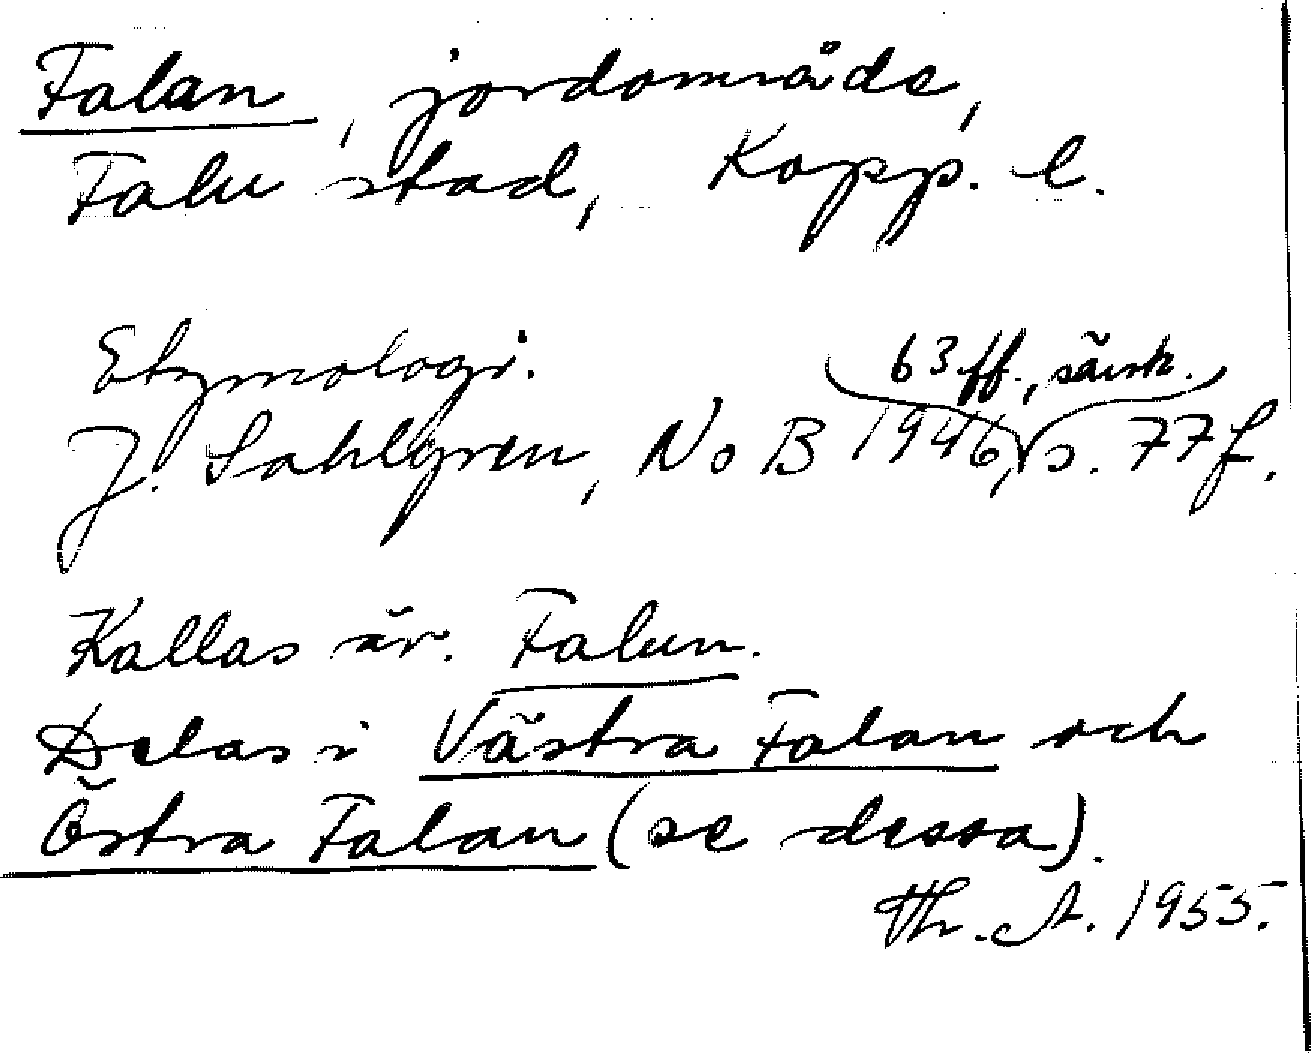 Falan, jordområde,
Falu stad, Kopp. l.
Etymologi.
63 ff., särsk.
J. Sahlgren, NoB 1946, s. 77 f.
Kallas äv. Falun.
Delas i Västra Falan och
Östra Falan (se dessa).
Th. A. 1955.